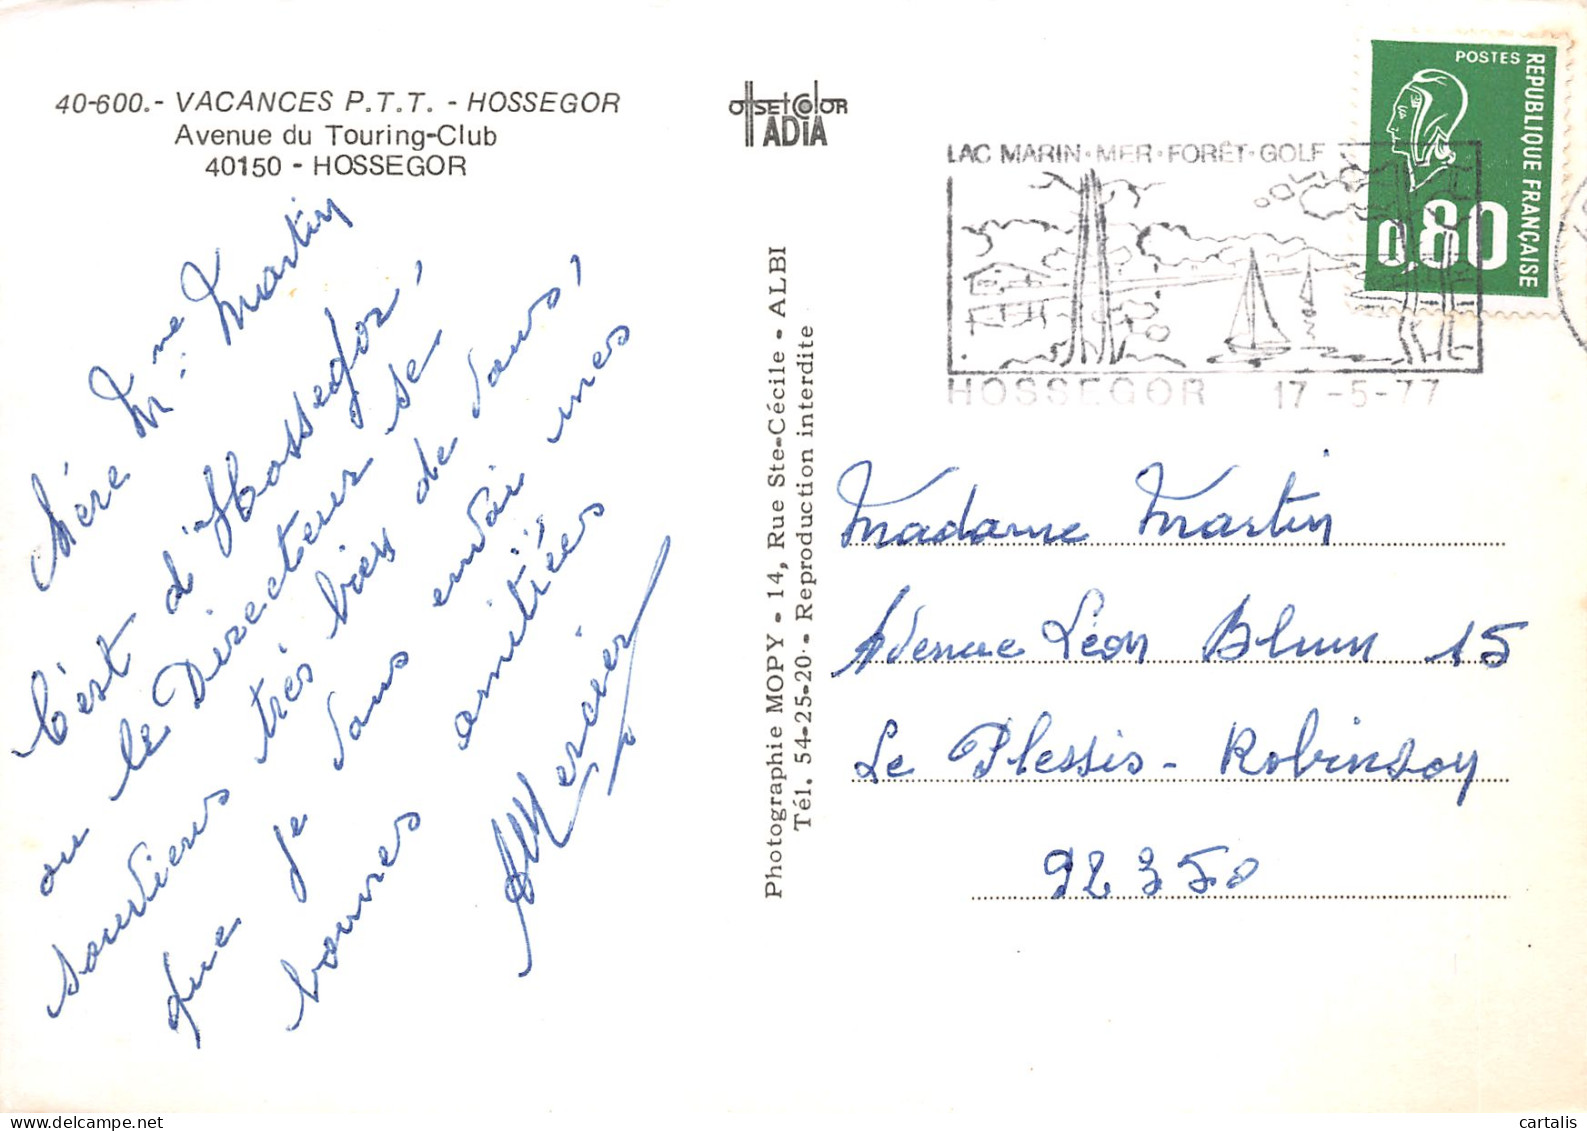 40-600.- VACANCES P.T.T. - HOSSEGOR
Avenue du Touring-Club
40150 - HOSSEGOR
Chére Mme Martin
C'est d'Hossegor,
ou le Directeur se
souviens très bien de vous,
que je vous envoi mes
bonnes amitiées
Mercier
OffsetColor
TADIA
Photographie MOPY - 14, Rue Ste-Cécile - ALBI
Tél. 54-25-20 - Reproduction interdite
LAC MARIN·MER·FORÊT·GOLF
HOSSEGOR 17-5-77
POSTES
REPUBLIQUE FRANÇAISE
0,80
Madame Martin
Avenue Léon Blum 15
Le Plessis-Robinson
92350
cartalis